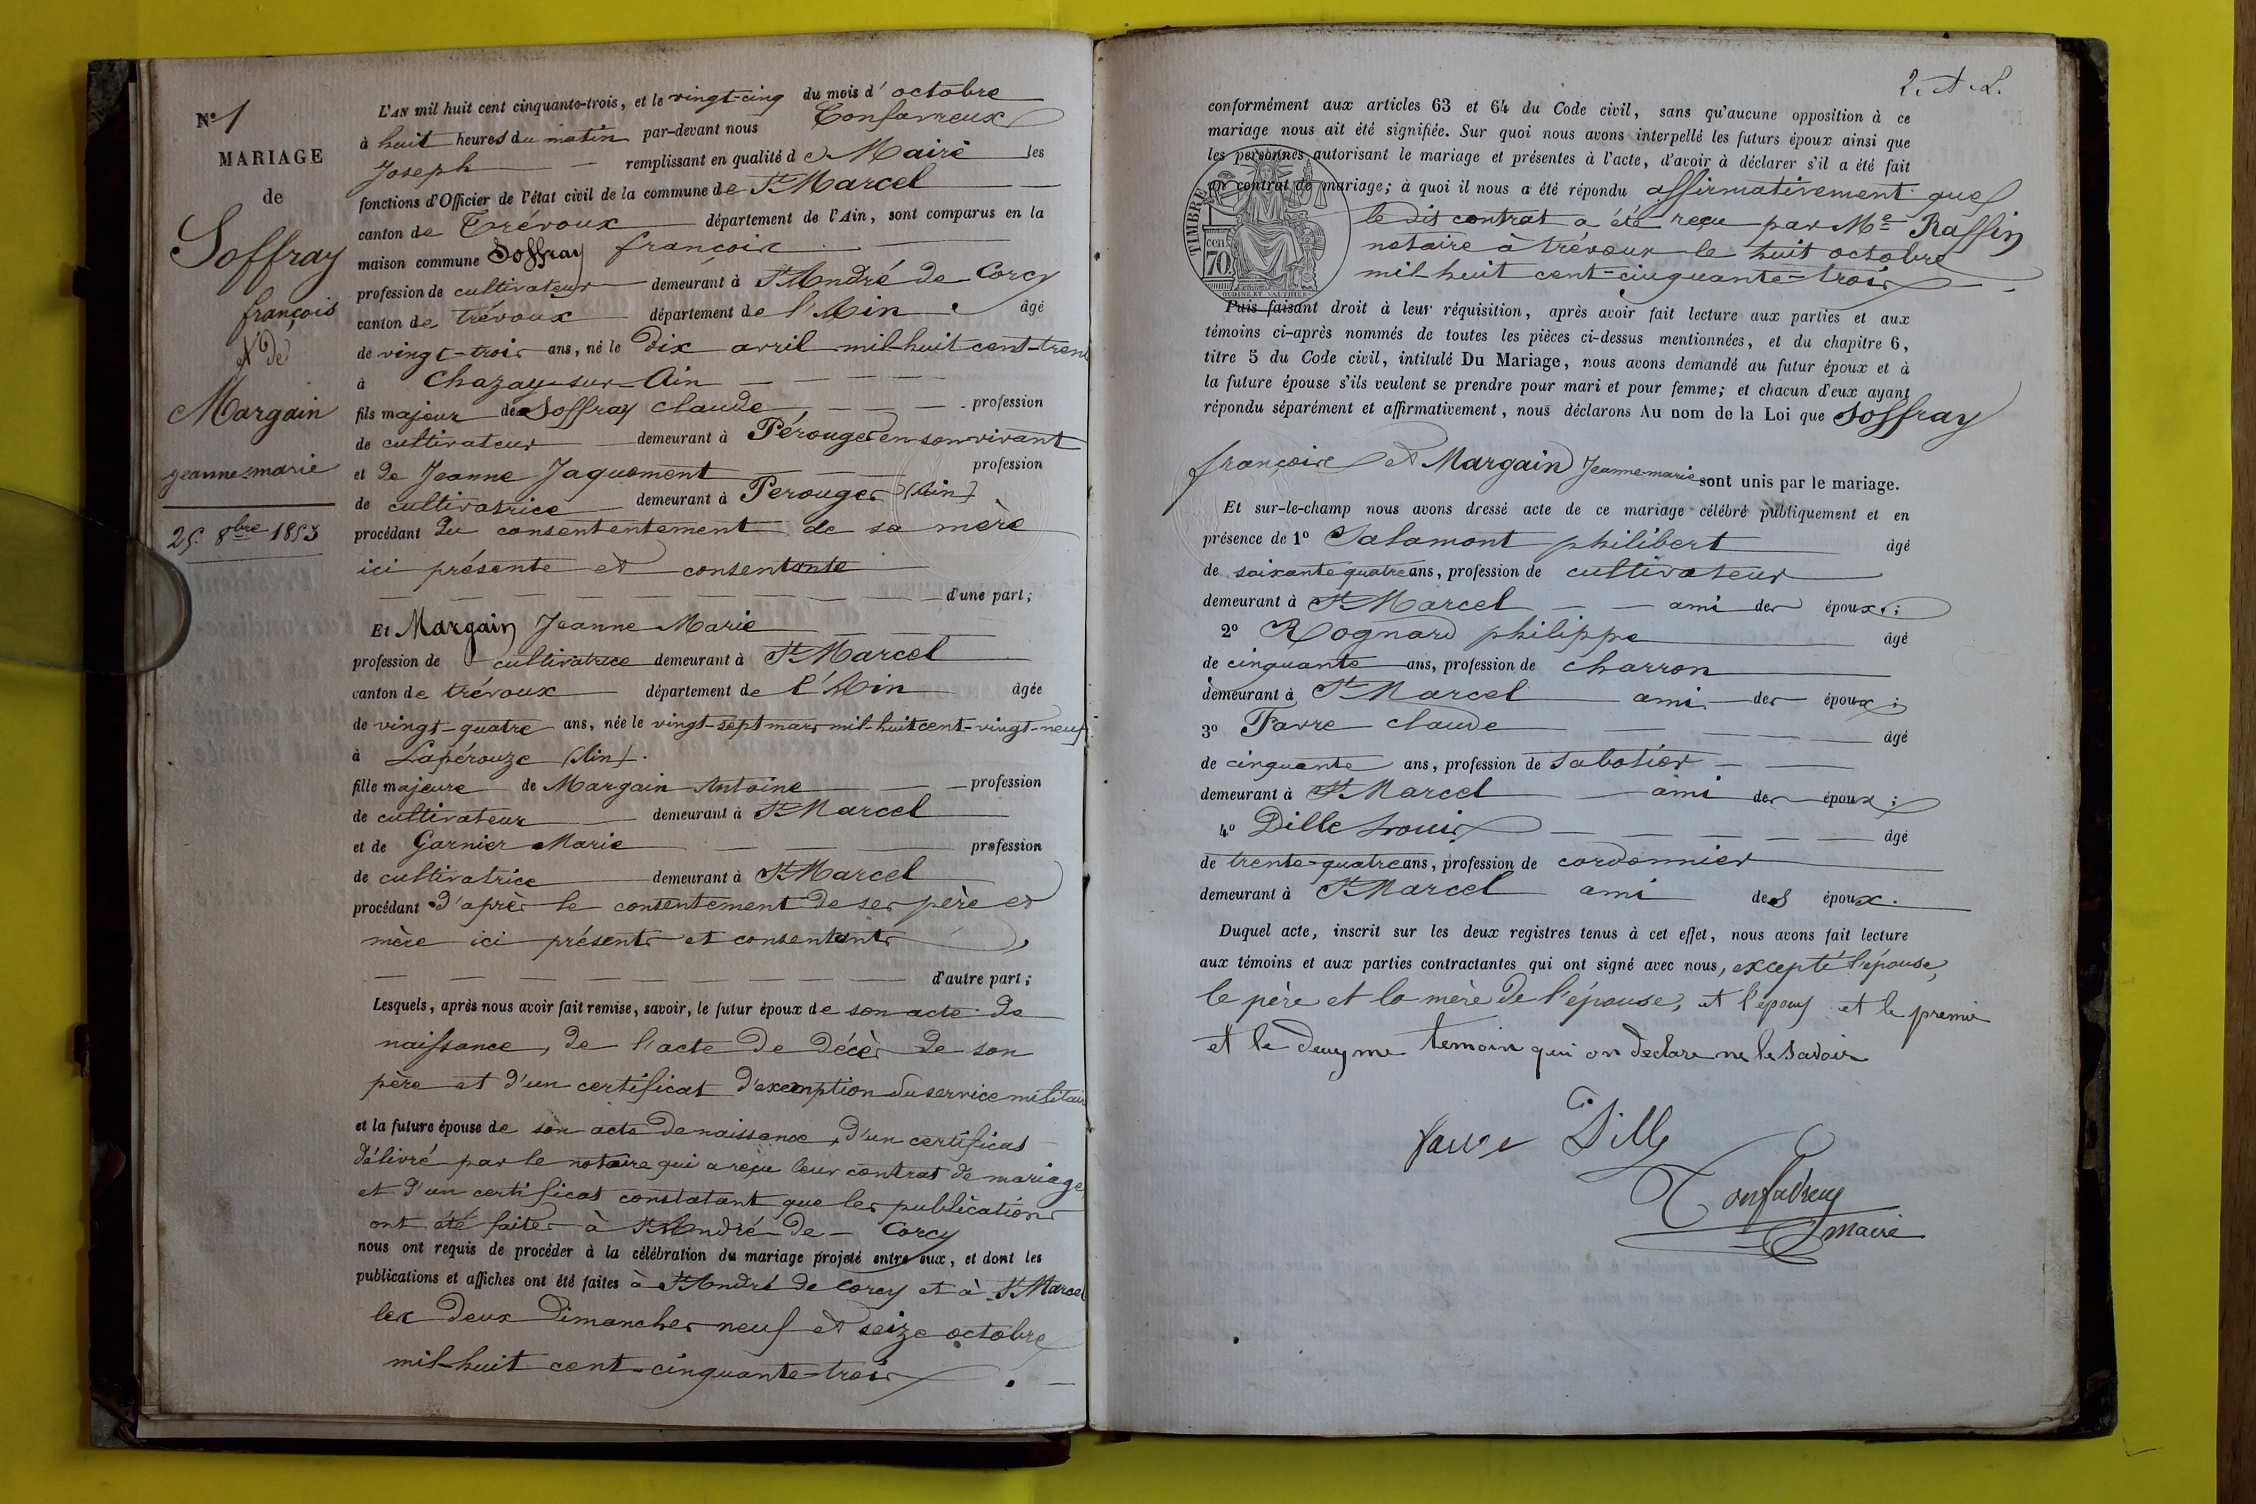 N° 1
MARIAGE
de
Soffray
françois
et de
Margain
jeanne-marie
25. 8bre 1853
L'AN mil huit cent cinquante-trois, et le vingt-cinq du mois d'octobre
à huit heures du matin par-devant nous Confavreux
Joseph remplissant en qualité de Maire les
fonctions d'Officier de l'état civil de la commune de St Marcel
canton de Trévoux département de l'Ain, sont comparus en la
maison commune Soffray françois
profession de cultivateur demeurant à St André de Corcy
canton de trévoux département de l'Ain âgé
de vingt-trois ans, né le dix avril mil-huit-cent-trente
à Chazay-sur-Ain
fils majeur de Soffray claude profession
de cultivateur demeurant à Pérouges en son vivant
et de Jeanne Jaquement profession
de cultivatrice demeurant à Perouges (Ain)
procédant du consententement de sa mère
ici présente et consentante
d'une part;
Et Margain Jeanne Marie
profession de cultivatrice demeurant à St Marcel
canton de trévoux département de l'Ain âgée
de vingt-quatre ans, née le vingt-sept mars mil-huit cent-vingt-neuf
à Lapérouze (Ain).
fille majeure de Margain Antoine profession
de cultivateur demeurant à St Marcel
et de Garnier Marie profession
de cultivatrice demeurant à St Marcel
procédant d'après le consentement de ses père et
mère ici présents et consentants
d'autre part;
Lesquels, après nous avoir fait remise, savoir, le futur époux de son acte de
naissance, de l'acte de décès de son
père et d'un certificat d'exemption du service militaire
et la future épouse de son acte de naissance, d'un certificat
délivré par le notaire qui a reçu leur contrat de mariage
et d'un certificat constatant que les publications
ont été faites à St André de - Corcy
nous ont requis de procéder à la célébration du mariage projeté entre eux, et dont les
publications et affiches ont été faites à St André de Corcy et à St Marcel
les deux Dimanches neuf et seize octobre
mil-huit cent-cinquante-trois
2. A. L.
conformément aux articles 63 et 64 du Code civil, sans qu'aucune opposition à ce
mariage nous ait été signifiée. Sur quoi nous avons interpellé les futurs époux ainsi que
les personnes autorisant le mariage et présentes à l'acte, d'avoir à déclarer s'il a été fait
un contrat de mariage; à quoi il nous a été répondu affirmativement que
le dit contrat a été reçu par Me Raffin
notaire à trévoux le huit octobre
mil huit cent-cinquante-trois
TIMBRE
cen
70
OUDINE ET VAUTHIER
Puis faisant droit à leur réquisition, après avoir fait lecture aux parties et aux
témoins ci-après nommés de toutes les pièces ci-dessus mentionnées, et du chapitre 6,
titre 5 du Code civil, intitulé Du Mariage, nous avons demandé au futur époux et à
la future épouse s'ils veulent se prendre pour mari et pour femme; et chacun d'eux ayant
répondu séparément et affirmativement, nous déclarons Au nom de la Loi que Soffray
françois et Margain Jeanne-marie sont unis par le mariage.
Et sur-le-champ nous avons dressé acte de ce mariage célébré publiquement et en
présence de 1° Salamont philibert âgé
de soixante quatre ans, profession de cultivateur
demeurant à St Marcel ami des époux;
2° Rognard philippe âgé
de cinquante ans, profession de charron
demeurant à St Marcel ami des époux;
3° Favre claude âgé
de cinquante ans, profession de sabotier
demeurant à St Marcel ami des époux;
4° Dille Louis âgé
de trente-quatre ans, profession de cordonnier
demeurant à St Marcel ami des époux.
Duquel acte, inscrit sur les deux registres tenus à cet effet, nous avons fait lecture
aux témoins et aux parties contractantes qui ont signé avec nous, excepté l'épouse,
le père et la mère de l'épouse, et l'époux et le premier
et le deuxme temoin qui on declare ne le savoir
Dille
Confavreux
maire